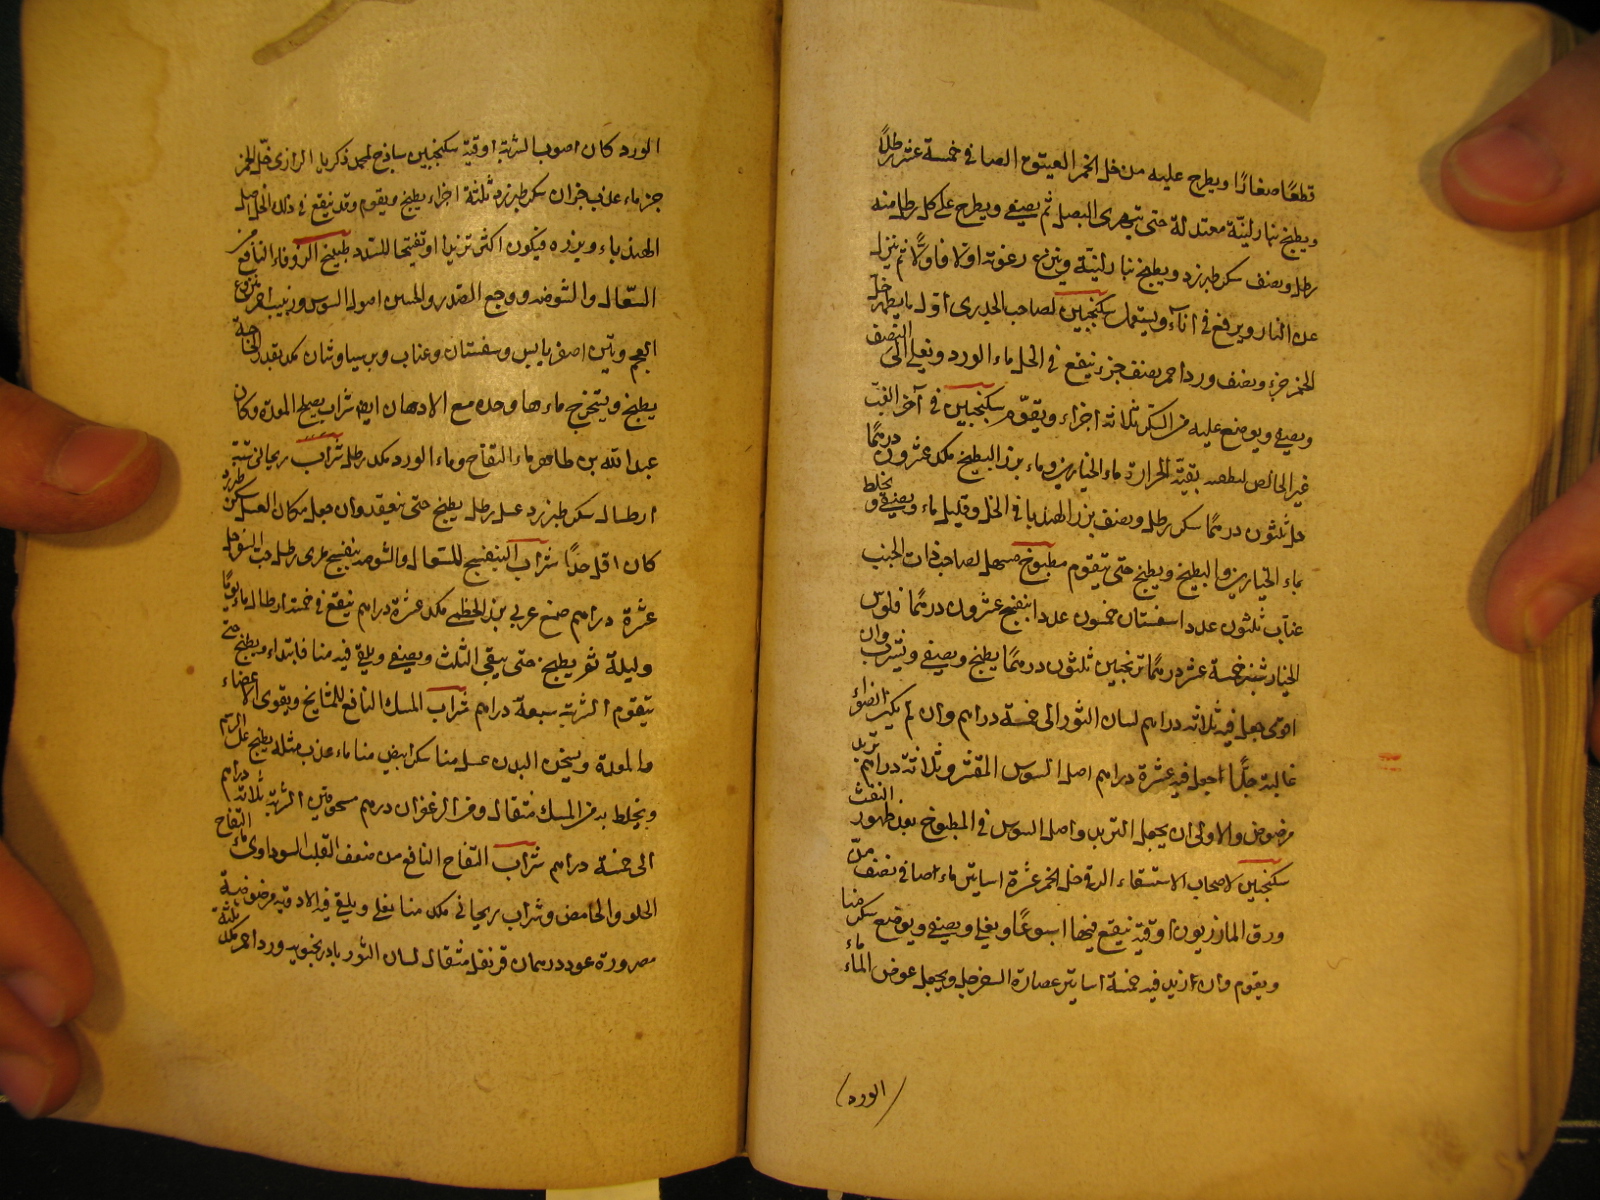 قطعًا صغارًا ويطرح عليه من خل الخمر العتيق الصافى خمسة عشر رطلًا
ويطبخ بنار لينة معتدلة حتى يتهرى البصل ثم يصفى ويطرح على كل رطل منه
رطل ونصف سكر طبرزد ويطبخ بنار لينة وينزع رغوته اولا فاولًا ثم ينزل
عن النار ويرفع فى اناء ويستعمل سكنجبين لصاحب الجدرى اوله خل
الخمر جزء ونصف ورد احمر نصف جزء ينقع فى الخل ماء الورد ويغلى الى النصف
ويصفى ويوضع عليه من السكر ثلاثة اجزاء ويقوم سكنجبين فى آخر الغب
غير الخالص لبقية الحرارة ماء الخيارين وماء بزر البطيخ مكد عشرون درهمًا
خل ثلثون درهمًا سكر رطل ونصف بزر الهندبا فى الخل وقليل ماء ويصفى ويخلط
بماء الخيارين والبطيخ ويطبخ حتى يتقوم مطبوخ مسهل لصاحب ذات الجنب
عناب ثلثون عددا سفستان خمسون عددا بنفسج عشرون درهمًا فلوس
الخيار شنبر خمسة عشر درهمًا ترنجبين ثلثون درهمًا يطبخ ويصفى ويشرب وان
جعل فيه ثلاثة دراهم لسان الثور الى خمسة دراهم وان لم يكن
غالبة جدًا اجعل فيه عشرة دراهم اصل السوس المقشر وثلاثة دراهم تربد
مرضوض والاولى ان يجعل التربد واصل السوس فى المطبوخ بعد ظهور النفث
سكنجبين لاصحاب الاستسقاء خل الخمر عشرة اساتير ماء صافى نصف من
ورق المازريون اوقية ينقع فيها اسبوعًا ويغلى ويصفى ويوضع سكر منا
ويقوم وان ازيد فيه خمسة اساتير عصارة السفرجل ويجعل عوض الماء ماء
الورد
الورد كان اصوب الشربة اوقية سكنجبين ساذج لمحمد زكريا الرازى خل الخمر
جزء ماء عذب جزان سكر طبرزد ثلثة اجزاء يطبخ ويقوم وقد ينقع فى ذلك الخل اصل
الهندباء وبزره فيكون اكثر تبريدا وتفتيحا للسدد طبيخ الزوفاء النافع من
السعال والشوصة ووجع الصدر والجنبين اصول السوس وزبيب احمر منزوع
العجم وتين اصفر يابس وسفستان وعناب وبرسياوشان مكد بقدر الحاجة
يطبخ ويستخرج ماءها وحده مع الادهان ايضا شراب يصلح المعدة وكان
عبد الله بن طاهر ماء التفاح وماء الورد مكد رطل شراب ريحانى ستة
ارطال سكر طبرزد عسل رطل يطبخ حتى ينعقد وان جعل مكان العسل سكر طبرزد
كان اقل حدًا شراب البنفسج للسعال والشوصة بنفسج طرى رطل حب السفرجل
عشرة دراهم صمغ عربى بزر الخطمى مكد عشرة دراهم ينقع فى خمسة ارطال ماء يومًا
وليلة ثم يطبخ حتى يبقى الثلث ويصفى ويلقى فيه منا فانيذا ويطبخ حتى
يتقوم الشربة سبعة دراهم شراب المسك النافع للمشايخ ويقوى الاعضاء
والمعدة ويسخن البدن عسل منا سكر ابيض منا ماء عذب مثله يطبخ على الرسم
ويخلط به من المسك مثقال ومن الزعفران درهم مسحوقين الشربة ثلاثة دراهم
الى خمسة دراهم شراب التفاح النافع من ضعف القلب السوداوى ماء التفاح
الحلو والحامض وشراب ريحانى مكد منا يغلى ويلقى فيه الادوية مرضوضة
مصرورة عود درهمان قرنفل مثقال لسان الثور بادرنجبويه ورد احمر مكد ثلثة